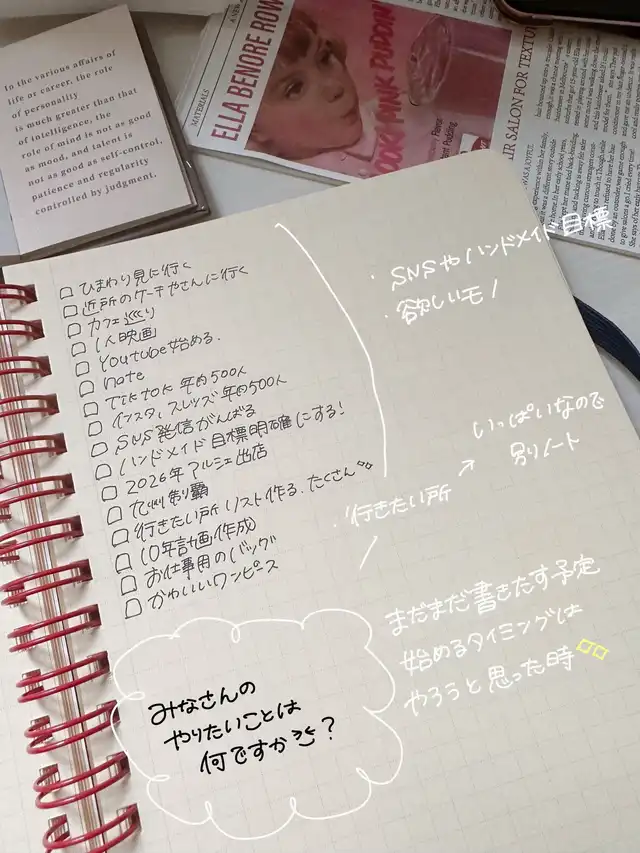 In the various affairs of
life or career, the role
of personality
is much greater than that
of intelligence, the
role of mind is not as good
as mood, and talent is
not as good as self-control,
patience and regularity
controlled by judgment.
MATERIALS
ELLA BENORE ROW
PINK PUDDIN
AIR SALON FOR TEXTUR
□ ひまわり見に行く
□ 近所のケーキやさんに行く
□ カフェ巡り
□ 1人映画
□ Youtube始める.
□ note
□ TikTok 年内500人
□ インスタ,スレッズ 年内500人
□ SNS発信がんばる
□ ハンドメイド目標明確にする!
□ 2026年マルシェ出店
□ 九州制覇
□ 行きたい所リスト作る.たくさん
□ 10年計画作成
□ お仕事用のバッグ
□ かわいいワンピース
・SNSやハンドメイド目標
・欲しいモノ
・行きたい所
↗ いっぱいなので
別ノート
まだまだ書きたす予定
始めるタイミングは
やろうと思った時
みなさんの
やりたいことは
何ですか?